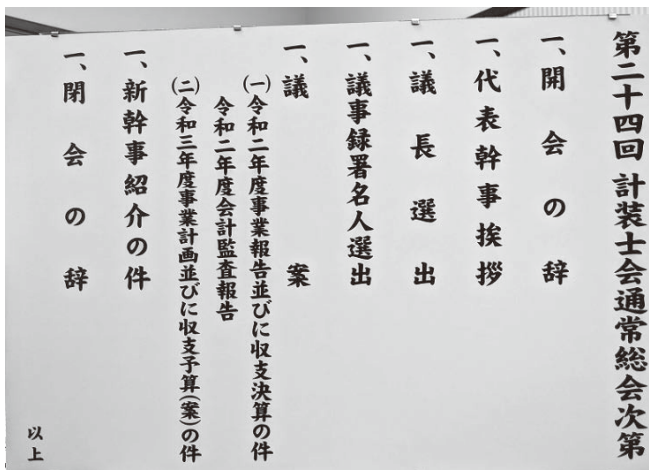 第二十四回 計装士会通常総会次第
一、開会の辞
一、代表幹事挨拶
一、議長選出
一、議事録署名人選出
一、議案
(一)令和二年度事業報告並びに収支決算の件
令和二年度会計監査報告
(二)令和三年度事業計画並びに収支予算(案)の件
一、新幹事紹介の件
一、閉会の辞
以上